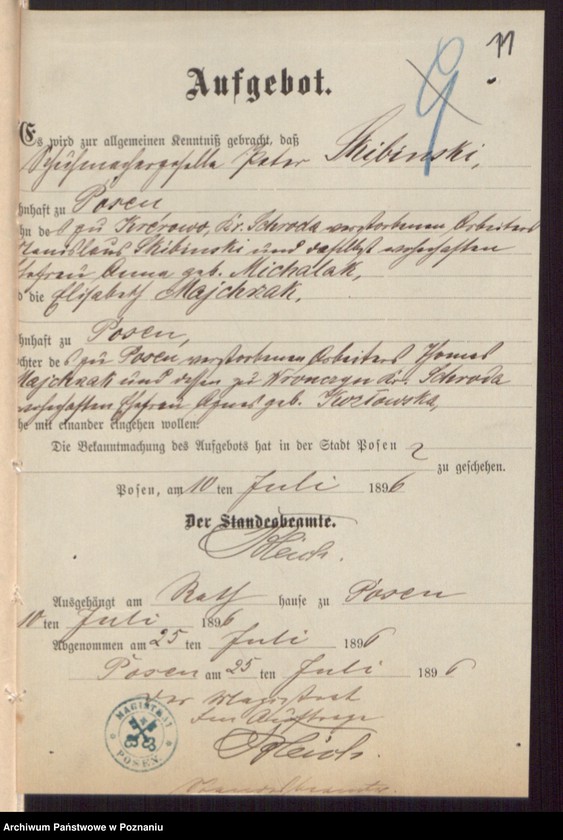 11
9
Aufgebot.
Es wird zur allgemeinen Kenntniß gebracht, daß
Schuhmachergeselle Peter Skibinski,
hnhaft zu Posen
hn des zu Krerowo, Kr. Schroda verstorbenen Arbeiters
Stanislaus Skibinski und daselbst wohnhaften
Ehefrau Anna geb. Michalak,
d die Elisabeth Majchrzak,
hnhaft zu Posen,
chter des zu Posen verstorbenen Arbeiters Thomas
Majchrzak und dessen zu Kr. Schroda
wohnhaften Ehefrau Agnes geb. Kozlowska,
he mit einander eingehen wollen.
Die Bekanntmachung des Aufgebots hat in der Stadt Posen
zu geschehen.
Posen, am 10 ten Juli 1896
Der Standesbeamte.
Ausgehängt am Rath hause zu Posen
10 ten Juli 1896
Abgenommen am 25 ten Juli 1896
Posen am 25 ten Juli 1896
Der Magistrat
Im Auftrage
MAGISTRAT
POSEN.
Standesbeamter.
Archiwum Państwowe w Poznaniu